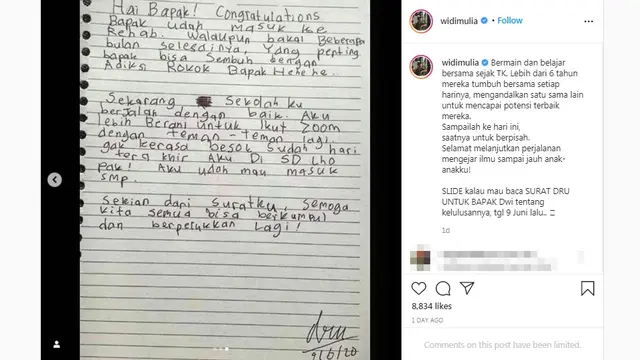 Hai Bapak! Congratulations
Bapak udah masuk ke
Rehab. Walaupun bakal Beberapa
bulan selesainya. Yang penting
bapak bisa sembuh dengan
Adiksi Rokok Bapak Hehehe.
Sekarang Sekolah ku
berjalan dengan baik. Aku
lebih Berani untuk ikut Zoom
dengan teman - teman lagi.
gak kerasa besok sudah hari
tera khir Aku Di SD Lho
pak! Aku udah mau masuk
smp.
Sekian dari suratku, semoga
kita semua bisa berkumpul
dan berpelukkan lagi!
dru
9/6/20
widimulia • Follow
widimulia Bermain dan belajar
bersama sejak TK. Lebih dari 6 tahun
mereka tumbuh bersama setiap
harinya, mengandalkan satu sama lain
untuk mencapai potensi terbaik
mereka.
Sampailah ke hari ini,
saatnya untuk berpisah.
Selamat melanjutkan perjalanan
mengejar ilmu sampai jauh anak-
anakku!
SLIDE kalau mau baca SURAT DRU
UNTUK BAPAK Dwi tentang
kelulusannya, tgl 9 Juni lalu..
1d
8,834 likes
1 DAY AGO
Comments on this post have been limited.